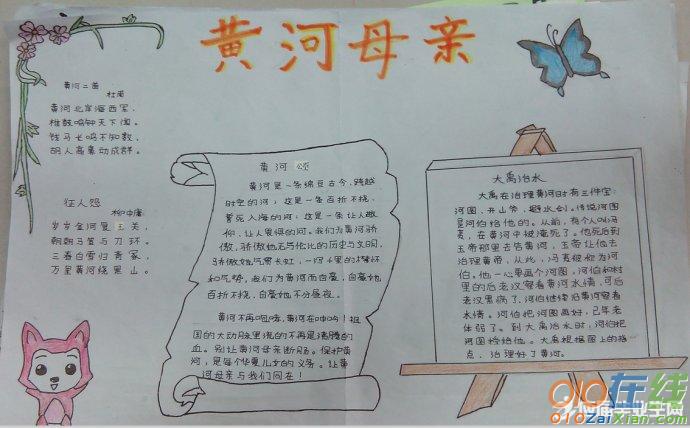 黄河母亲
黄河二首
杜甫
黄河北岸海西军,
椎鼓鸣钟天下闻。
铁马长鸣不知数,
胡人高鼻动成群。
征人怨
柳中庸
岁岁金河复玉关,
朝朝马策与刀环。
三春白雪归青冢,
万里黄河绕黑山。
黄河颂
黄河是一条绵亘古今、跨越
时空的河;这是一条百折不挠,
奔流入海的河;这是一条让人敬
仰,让人畏惧的河。我们为黄河骄
傲,骄傲她无与伦比的历史与文明,
骄傲她气贯长虹,一泻千里的襟怀
和气势,我们为黄河而自豪,自豪她
百折不挠,自豪她不分昼夜。
黄河不再咆哮,黄河在呻吟!祖
国的大动脉里流的不再是沸腾的
血。别让黄河母亲断肠。保护黄
河,是每个华夏儿女的义务。让黄
河母亲与我们同在!
大禹治水
大禹在治理黄河时有三件宝:
河图、开山斧、避水剑。传说河图
是河伯给他的。从前,有个人叫冯
夷,在黄河中被淹死了。他死后到
玉帝那里去告黄河,玉帝让他去
治理黄河,从此,冯夷被称为河
伯。他一心要画个河图,河伯和村
里的后老汉察看黄河水情,可后
老汉累病了,河伯继续沿黄河察看
水情。河伯把河图画好,已年老
体弱了。到大禹治水时,河伯把
河图给给他。大禹根据图上的指
点,治理好了黄河。
应届毕业生网
010在线
010ZaiXian.com